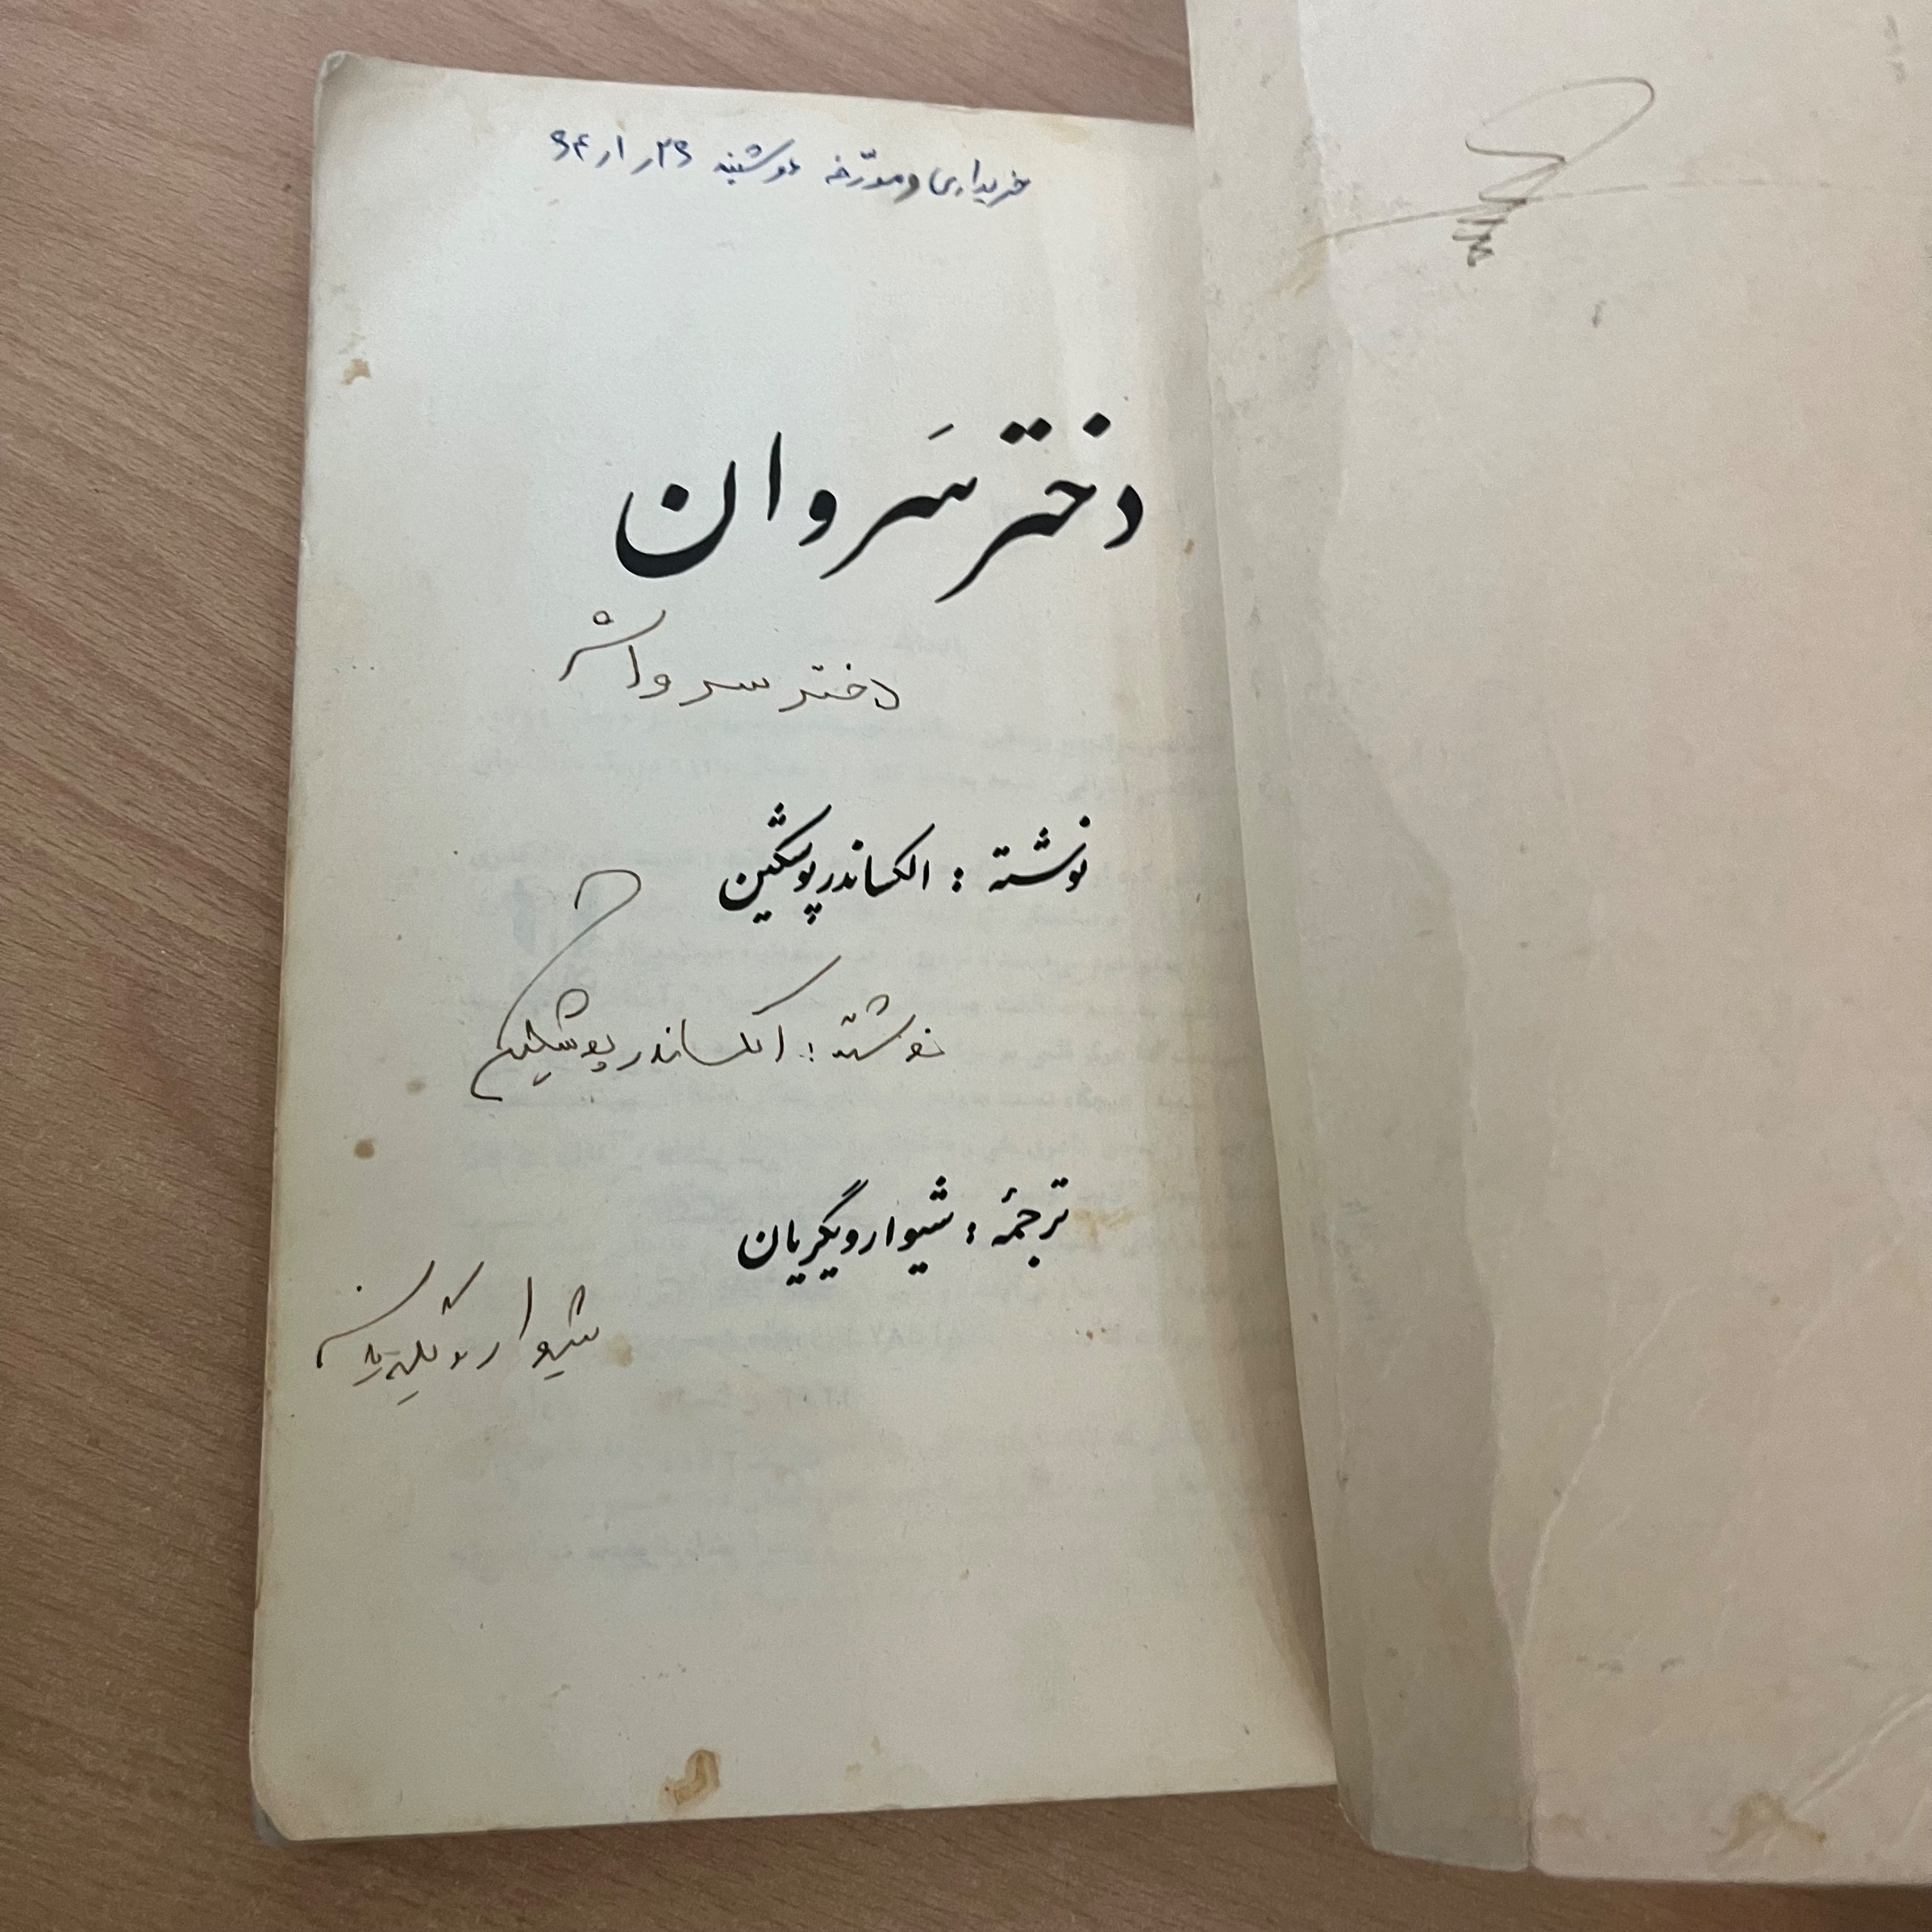 خریداری ومورّخه دوشنبه ۲۹ر۱ر۹۴
دختر سَروان
دختر سروان
نوشته : الکساندر پوشکین
نوشته : الکساندر پوشکین
ترجمهٔ : شیوا رویگریان
شیوا رویگریان